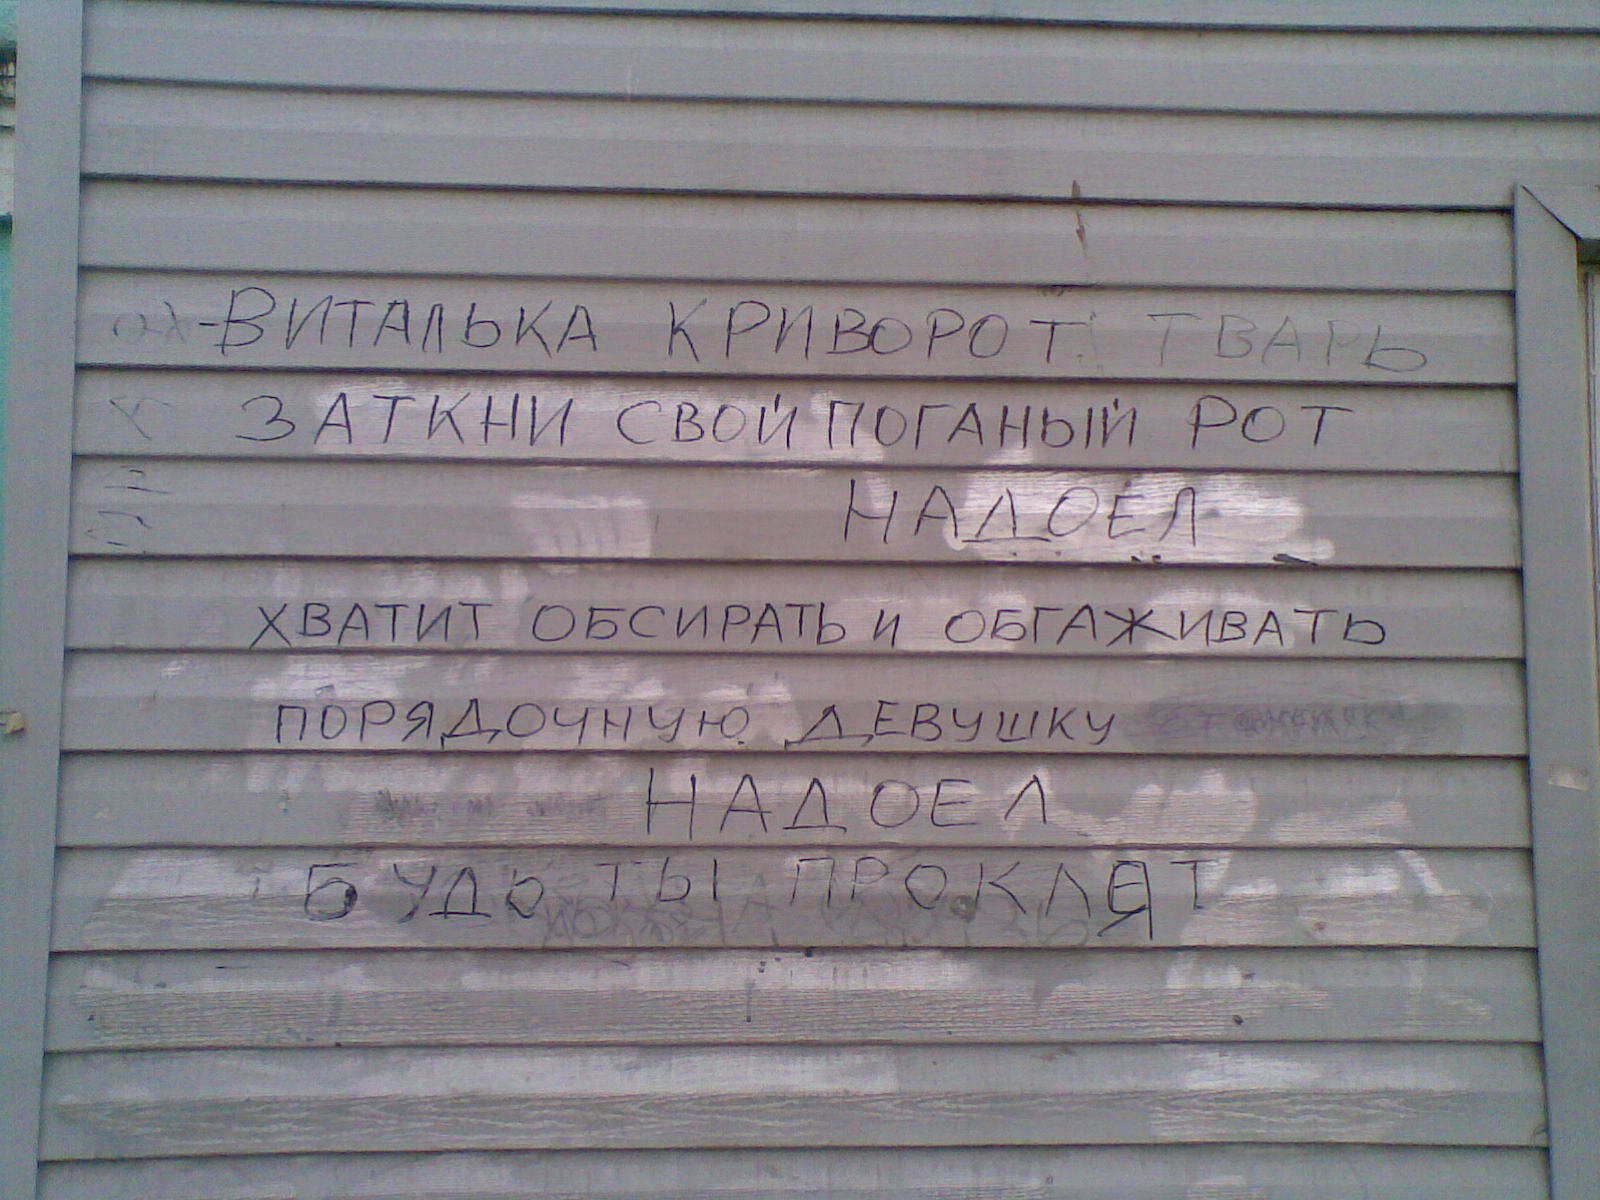 -ВИТАЛЬКА КРИВОРОТ ТВАРЬ
ЗАТКНИ СВОЙ ПОГАНЫЙ РОТ
НАДОЕЛ
ХВАТИТ ОБСИРАТЬ И ОБГАЖИВАТЬ
ПОРЯДОЧНУЮ ДЕВУШКУ
НАДОЕЛ
БУДЬ ТЫ ПРОКЛЯТ